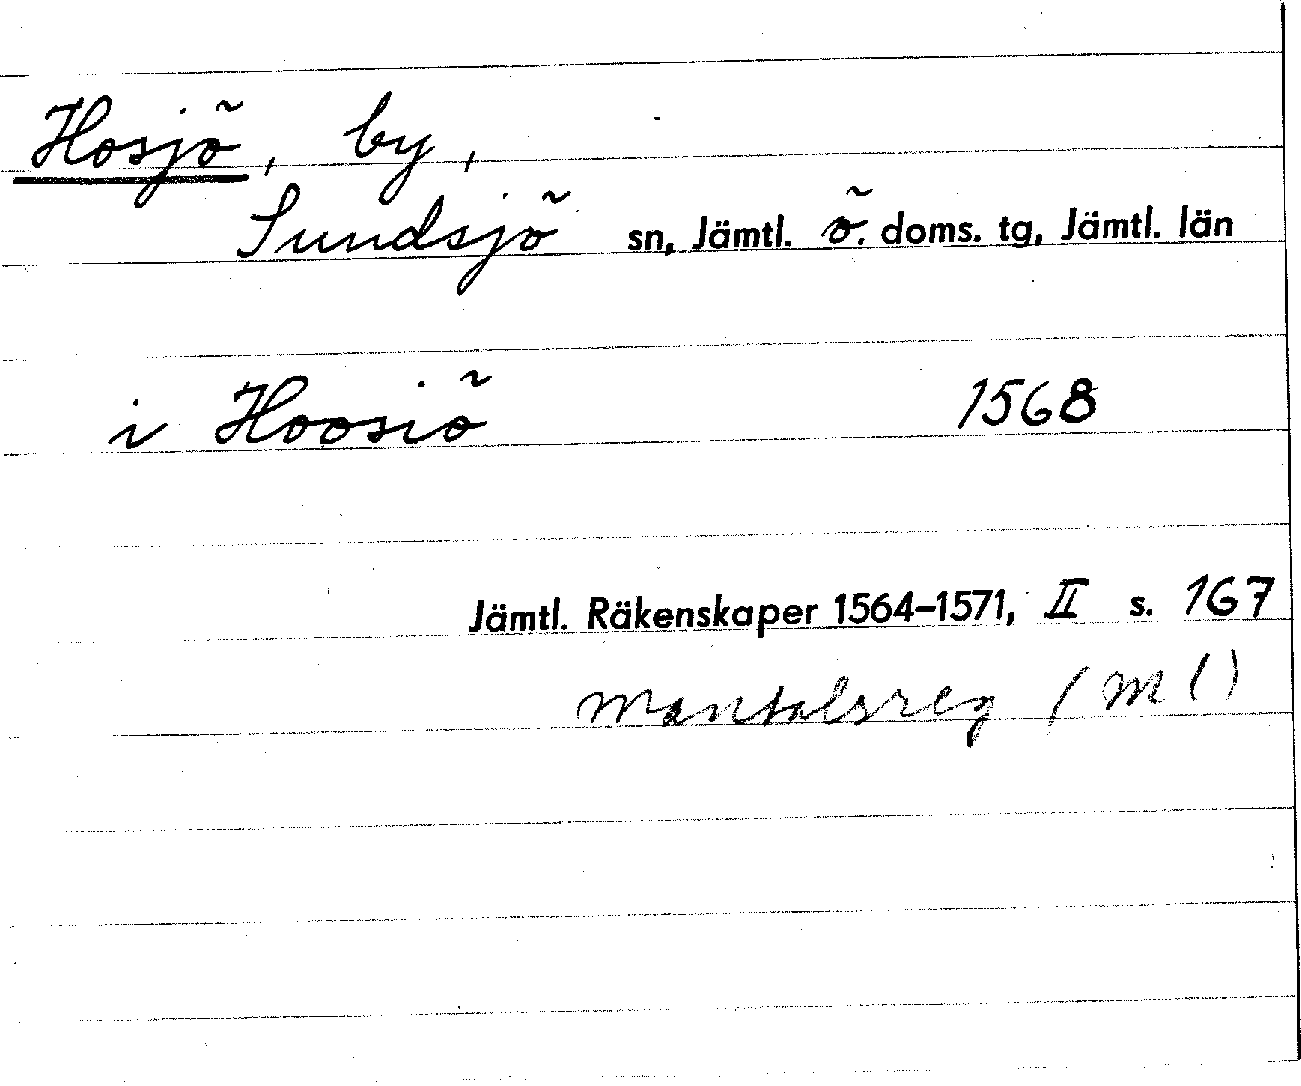 Hosjö, by,
Sundsjö sn, Jämtl. ö. doms. tg, Jämtl. län
i Hoosiö 1568
Jämtl. Räkenskaper 1564-1571, II s. 167
Mantalsreg (Ml)